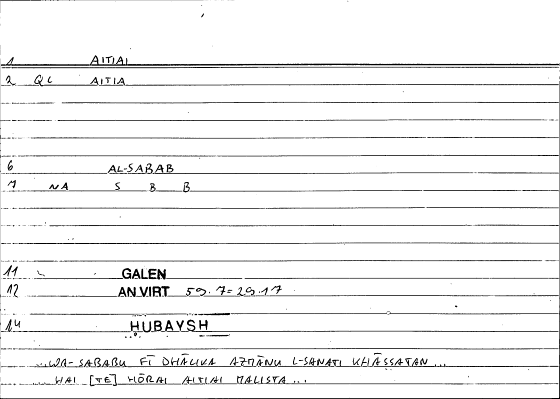 1 AITIAI
2 QC AITIA
6 AL-SABAB
7 NA S B B
11 GALEN
12 AN VIRT 59.7=29.17
14 HUBAYSH
...WA-SABABU FĪ DHĀLIKA AZMĀNU L-SANATI KHĀSSATAN...
...HAI [TE] HŌRAI AITIAI MALISTA...